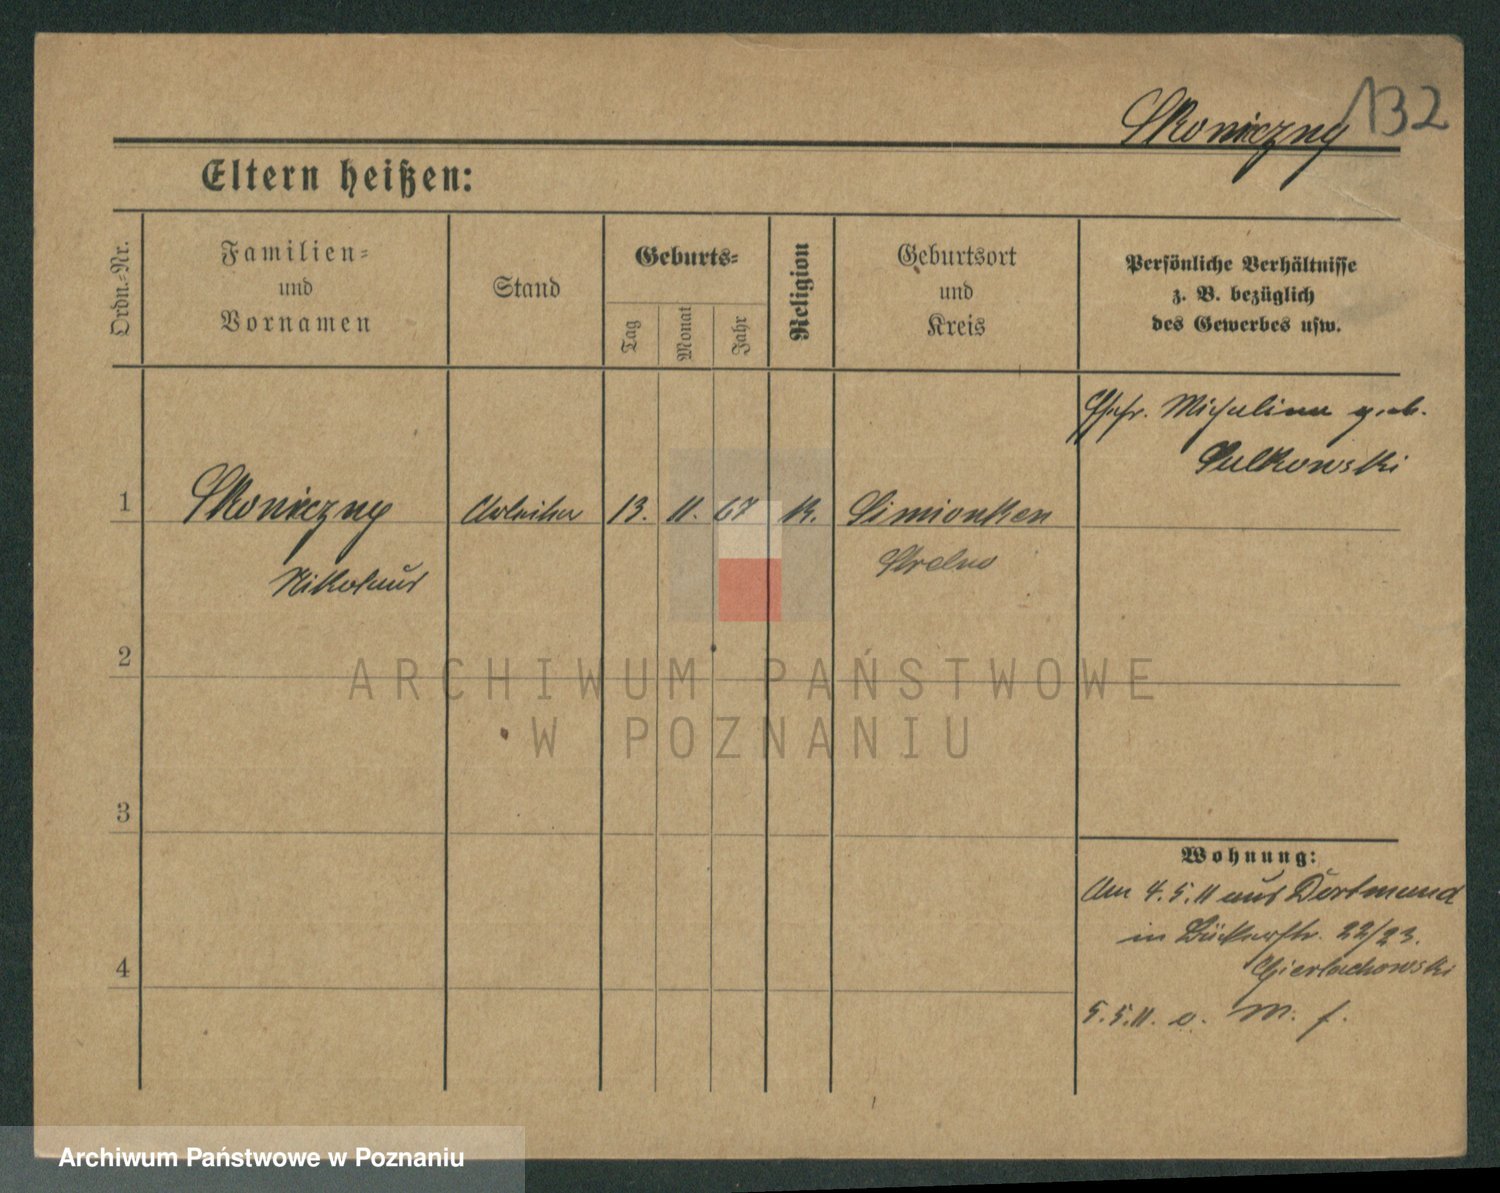 132
Skoniczny
Eltern heißen:
Ordn.-Nr.
Familien-
und
Vornamen
Stand
Geburts-
Tag
Monat
Jahr
Religion
Geburtsort
und
Kreis
Persönliche Verhältnisse
z. B. bezüglich
des Gewerbes usw.
Ehefr. Michalina geb.
Sulkowski
1 Skoniczny Arbeiter 13. 11. 67 k. Simionken
Nikolaus Strelno
2
3
4
Wohnung:
Am 4.5.11 aus Dortmund
in Bäckerstr. 22/23.
Gierlachowski
5.5.11. o. M. f.
ARCHIWUM PAŃSTWOWE
W POZNANIU
Archiwum Państwowe w Poznaniu